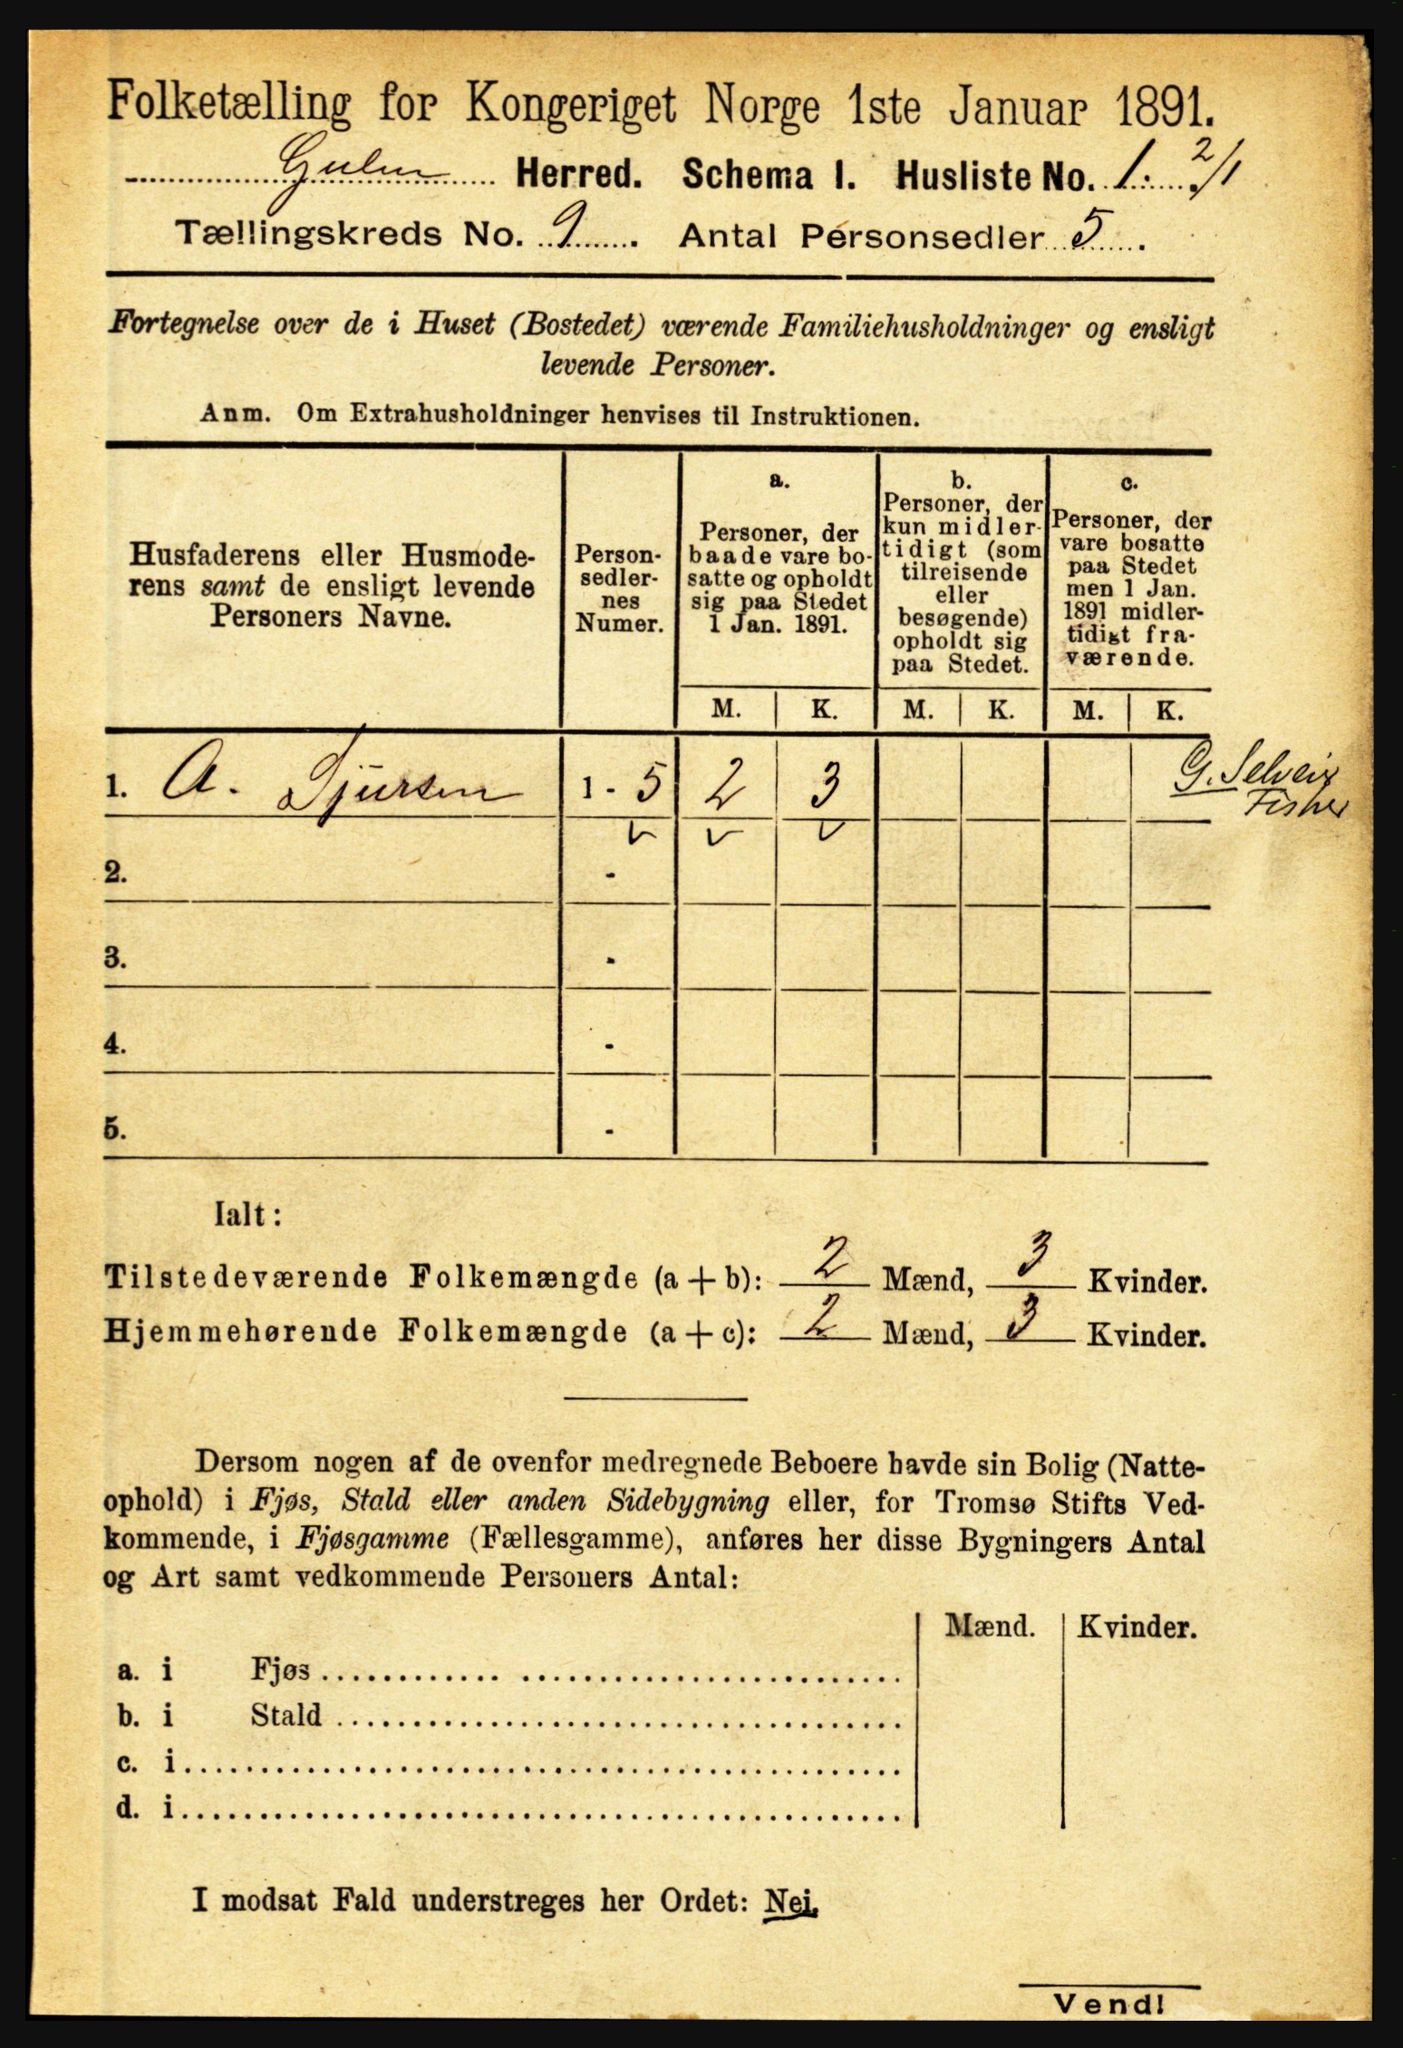 Folketælling for Kongeriget Norge 1ste Januar 1891.
Gulen Herred. Schema I. Husliste No. 1. 2/1
Tællingskreds No. 9. Antal Personsedler 5.
Fortegnelse over de i Huset (Bostedet) værende Familiehusholdninger og ensligt
levende Personer.
Anm. Om Extrahusholdninger henvises til Instruktionen.
Husfaderens eller Husmode-
rens samt de ensligt levende
Personers Navne.
Person-
sedler-
nes
Numer.
a.
Personer, der
baade vare bo-
satte og opholdt
sig paa Stedet
1 Jan. 1891.
b.
Personer, der
kun midler-
tidigt (som
tilreisende
eller
besøgende)
opholdt sig
paa Stedet.
c.
Personer, der
vare bosatte
paa Stedet
men 1 Jan.
1891 midler-
tidigt fra-
værende.
M. K. M. K. M. K.
1. A. Sjursen 1 - 5 2 3
G. Selveir
Fisker
2. -
3. -
4. -
5. -
Ialt:
Tilstedeværende Folkemængde (a + b): 2 Mænd, 3 Kvinder.
Hjemmehørende Folkemængde (a + c): 2 Mænd, 3 Kvinder.
Dersom nogen af de ovenfor medregnede Beboere havde sin Bolig (Natte-
ophold) i Fjøs, Stald eller anden Sidebygning eller, for Tromsø Stifts Ved-
kommende, i Fjøsgamme (Fællesgamme), anføres her disse Bygningers Antal
og Art samt vedkommende Personers Antal:
Mænd. Kvinder.
a. i Fjøs
b. i Stald
c. i
d. i
I modsat Fald understreges her Ordet: Nei.
Vend!